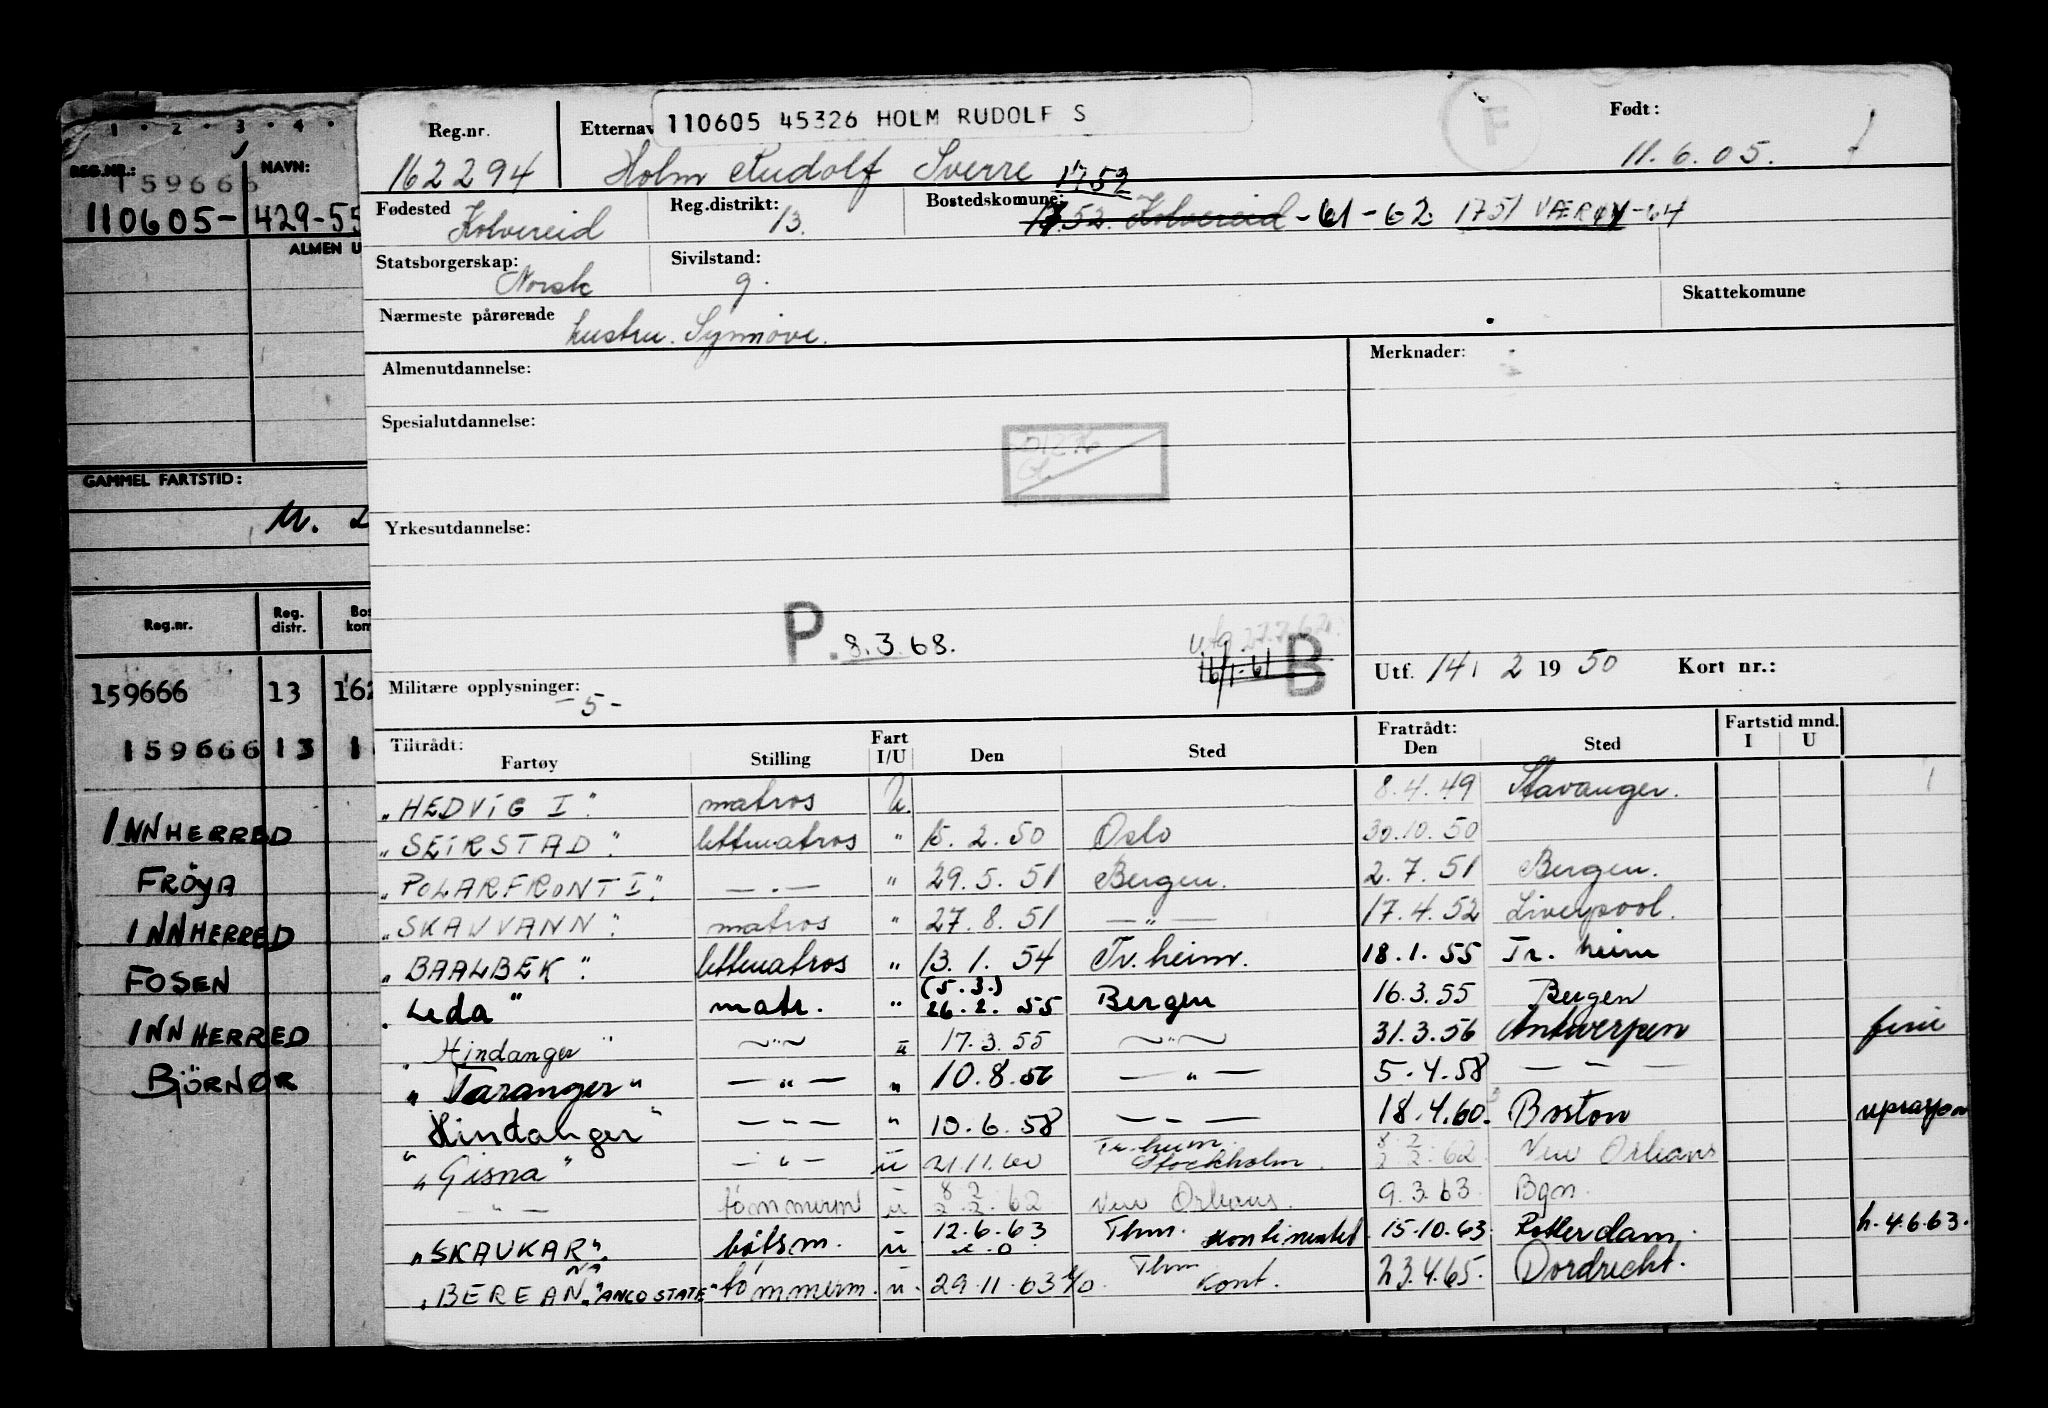 1 · 2 · 3 · 4 ·
REG.NR.: NAVN:
159666
110605- 429-55
ALMEN U
GAMMEL FARTSTID:
M.
Reg.nr. Reg. distr. Bos kom
159666 13 162
159666 13 1
INNHERRED
FRÖYA
INNHERRED
FOSEN
INNHERRED
BJÖRNÖR
110605 45326 HOLM RUDOLF S
Reg.nr. Etternav Født:
F
162294 Holm Rudolf Sverre 11.6.05.
1752
Fødested Reg.distrikt: Bostedskomune:
Kolvereid 13. 1752. Kolvereid -61-62. 1751 VÆRØY-64
Statsborgerskap: Sivilstand:
Norsk g.
Skattekomune
Nærmeste pårørende
hustru. Synnøve.
Almenutdannelse: Merknader:
Spesialutdannelse:
Yrkesutdannelse:
P. 8.3.68.
utg 27.7.62.
16/1-61 B
Utf. 14. 2 1950 Kort nr.:
Militære opplysninger:
-5-
Tiltrådt: Fart Fratrådt: Fartstid mnd.
Fartøy Stilling I/U Den Sted Den Sted I U
"HEDVIG I". matros U. 8.4.49 Stavanger.
"SEIRSTAD". lettmatros " 15.2.50 Oslo 30.10.50
"POLARFRONT I". —.— " 29.5.51 Bergen. 2.7.51 Bergen.
"SKAUVANN". matros " 27.8.51 —"— 17.4.52 Liverpool.
"BAALBEK". lettmatros " 13.1.54 Tr.heim. 18.1.55 Tr.heim
(5.3.)
"Leda" matr. " 26.2.55 Bergen 16.3.55 Bergen
"Hindanger" —"— u 17.3.55 —"— 31.3.56 Antwerpen ferie
"Taranger" —"— " 10.8.56 —"— 5.4.58 — — —
"Hindanger" — — — " 10.6.58 — — — 18.4.60. Boston
"Gisna" —"— u 21.11.60 Tr.heim. Stockholm. 8.2.62 New Orleans
—"— tømmerm u 8.2.62 New Orleans. 9.3.63 Bgn.
"SKAUKAR". båtsm. u 12.6.63 Thm. Kontinentet 15.10.63. Rotterdam. h. 4.6.63.
"BEREAN". "ANCO STATE" tømmerm. u. 29.11.63 Thm Kont. 23.4.65. Dordrecht.